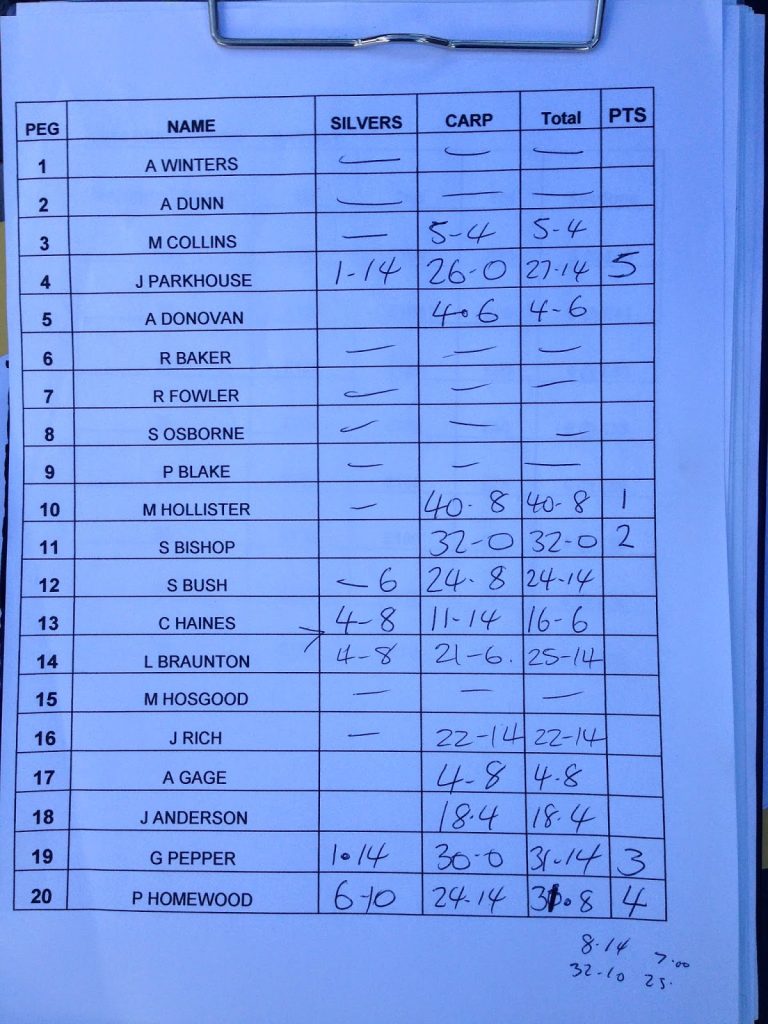 PEG NAME SILVERS CARP Total PTS
1 A WINTERS — — —
2 A DUNN — — —
3 M COLLINS — 5-4 5-4
4 J PARKHOUSE 1-14 26-0 27-14 5
5 A DONOVAN 4.6 4-6
6 R BAKER — — —
7 R FOWLER — — —
8 S OSBORNE — — —
9 P BLAKE — — —
10 M HOLLISTER — 40.8 40-8 1
11 S BISHOP 32-0 32-0 2
12 S BUSH —6 24.8 24-14
13 C HAINES 4-8 11-14 16-6
14 L BRAUNTON 4-8 21-6. 25-14
15 M HOSGOOD — — —
16 J RICH — 22-14 22-14
17 A GAGE 4-8 4.8
18 J ANDERSON 18.4 18.4
19 G PEPPER 1.14 30-0 31.14 3
20 P HOMEWOOD 6-10 24.14 31.8 4
8.14 7.00
32-10 25.